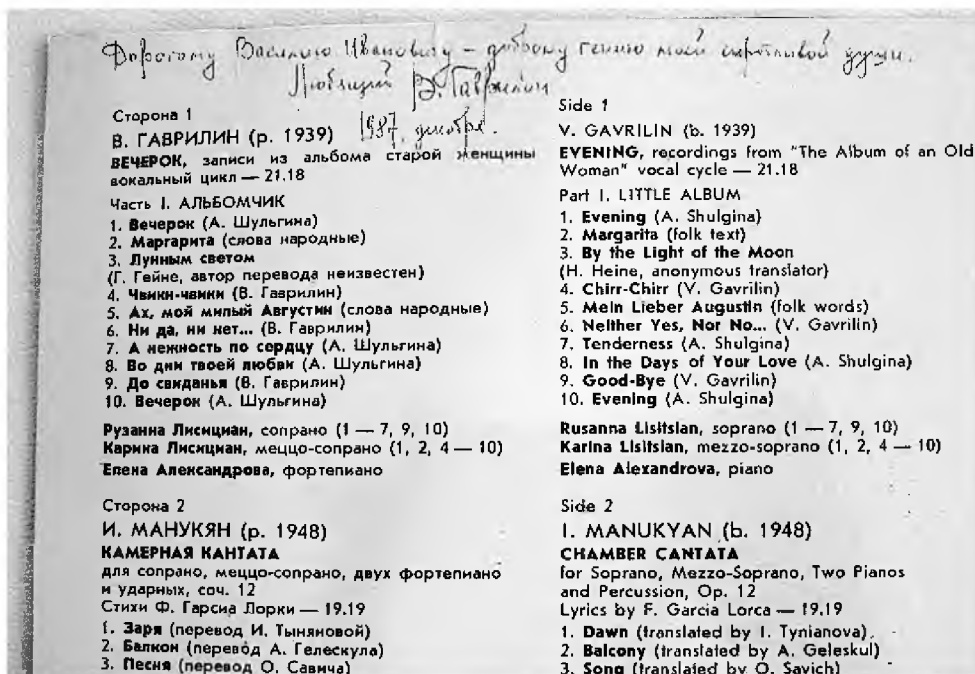 Дорогому Василию Ивановичу – доброму гению моей сиротливой души.
Любящий В. Гаврилин
1987, декабрь.
Сторона 1
В. ГАВРИЛИН (р. 1939)
ВЕЧЕРОК, записи из альбома старой женщины
вокальный цикл — 21.18
Часть I. АЛЬБОМЧИК
1. Вечерок (А. Шульгина)
2. Маргарита (слова народные)
3. Лунным светом
(Г. Гейне, автор перевода неизвестен)
4. Чвики-чвики (В. Гаврилин)
5. Ах, мой милый Августин (слова народные)
6. Ни да, ни нет... (В. Гаврилин)
7. А нежность по сердцу (А. Шульгина)
8. Во дни твоей любви (А. Шульгина)
9. До свиданья (В. Гаврилин)
10. Вечерок (А. Шульгина)
Рузанна Лисициан, сопрано (1 — 7, 9, 10)
Карина Лисициан, меццо-сопрано (1, 2, 4 — 10)
Елена Александрова, фортепиано
Сторона 2
И. МАНУКЯН (р. 1948)
КАМЕРНАЯ КАНТАТА
для сопрано, меццо-сопрано, двух фортепиано
и ударных, соч. 12
Стихи Ф. Гарсиа Лорки — 19.19
1. Заря (перевод И. Тыняновой)
2. Балкон (перевод А. Гелескула)
3. Песня (перевод О. Савича)
Side 1
V. GAVRILIN (b. 1939)
EVENING, recordings from "The Album of an Old
Woman" vocal cycle — 21.18
Part I. LITTLE ALBUM
1. Evening (A. Shulgina)
2. Margarita (folk text)
3. By the Light of the Moon
(H. Heine, anonymous translator)
4. Chirr-Chirr (V. Gavrilin)
5. Mein Lieber Augustin (folk words)
6. Neither Yes, Nor No... (V. Gavrilin)
7. Tenderness (A. Shulgina)
8. In the Days of Your Love (A. Shulgina)
9. Good-Bye (V. Gavrilin)
10. Evening (A. Shulgina)
Rusanna Lisitsian, soprano (1 — 7, 9, 10)
Karina Lisitsian, mezzo-soprano (1, 2, 4 — 10)
Elena Alexandrova, piano
Side 2
I. MANUKYAN (b. 1948)
CHAMBER CANTATA
for Soprano, Mezzo-Soprano, Two Pianos
and Percussion, Op. 12
Lyrics by F. Garcia Lorca — 19.19
1. Dawn (translated by I. Tynianova)
2. Balcony (translated by A. Geleskul)
3. Song (translated by O. Savich)